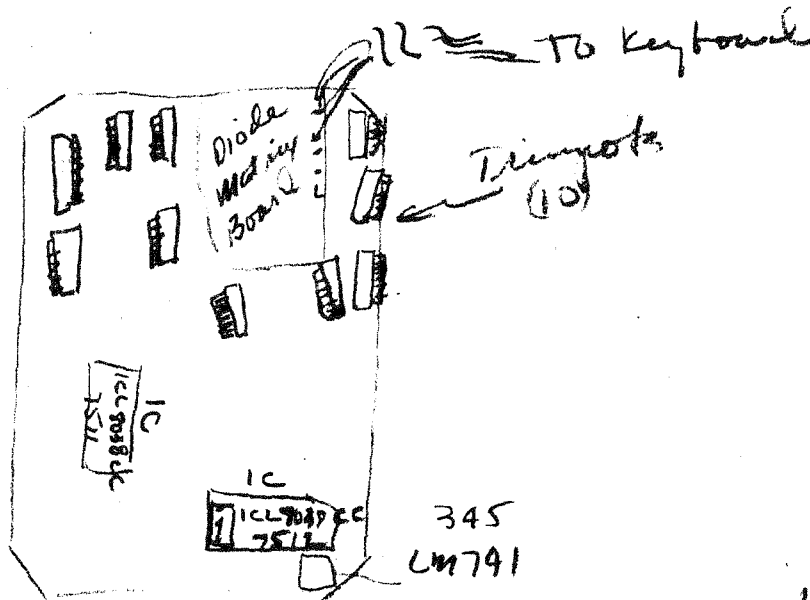 To Keyboard
Diode
Matrix
Board
Trimpots
(10)
IC
ICL8038CC
7511
IC
1
ICL8038 CC
7512
345
LM741